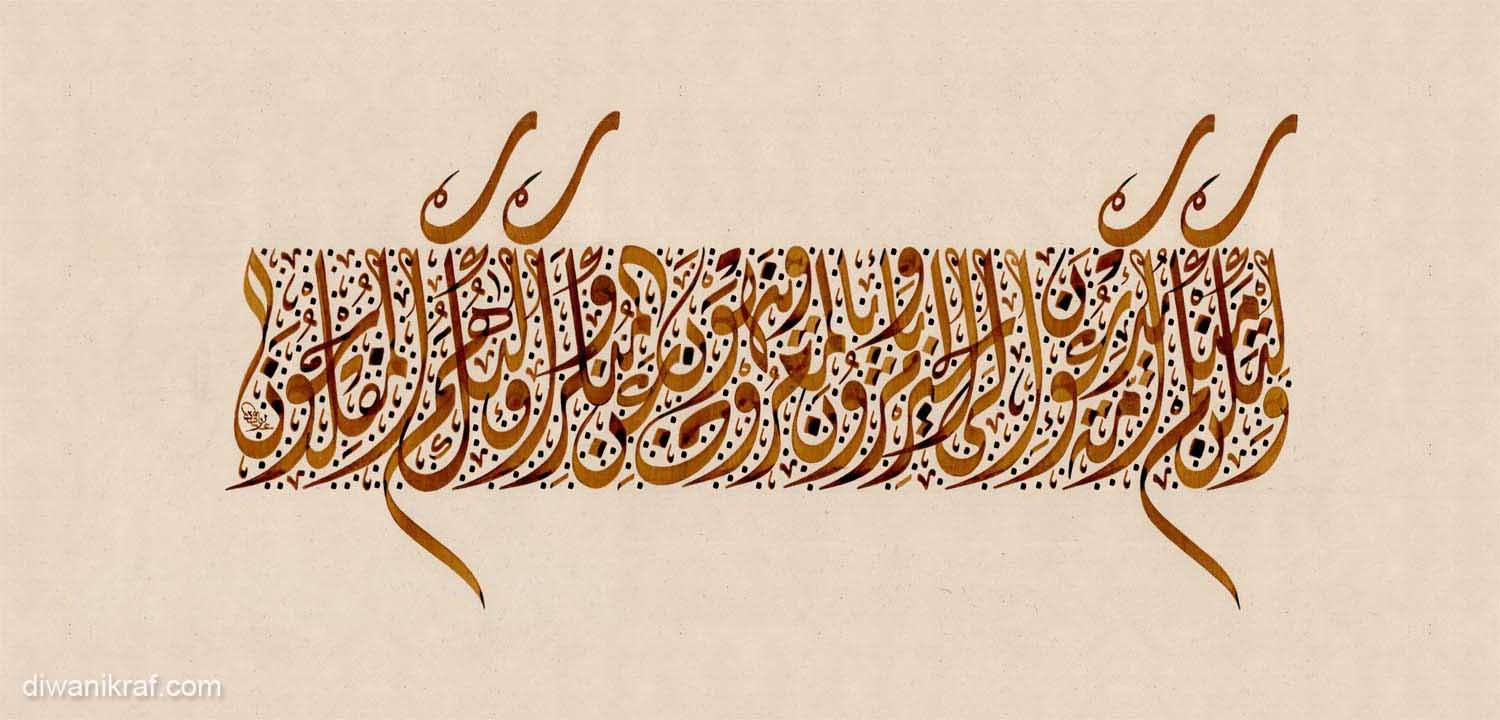 ولتكن منكم أمة يدعون إلى الخير ويأمرون بالمعروف وينهون عن المنكر وأولئك هم المفلحون
diwanikraf.com